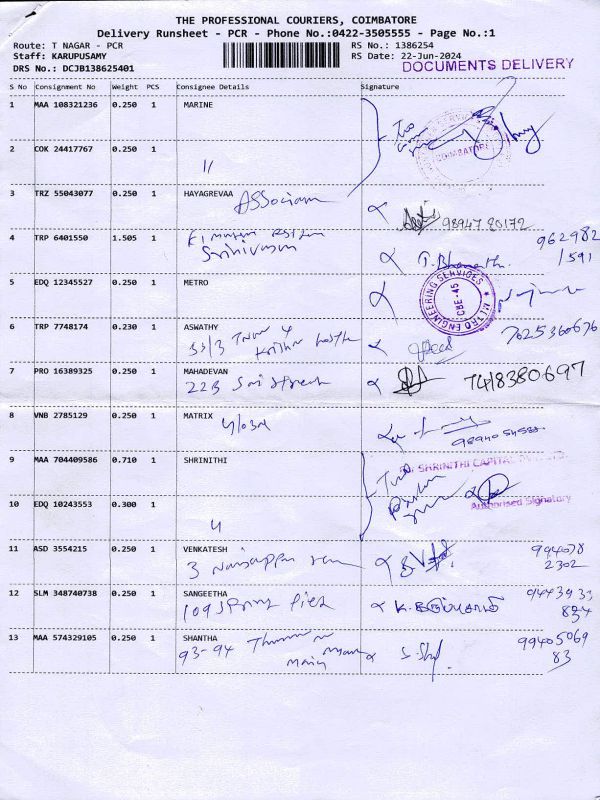 THE PROFESSIONAL COURIERS, COIMBATORE
Delivery Runsheet - PCR - Phone No.:0422-3505555 - Page No.:1
Route: T NAGAR - PCR
RS No.: 1386254
Staff: KARUPUSAMY
RS Date: 22-Jun-2024
DRS No.: DCJB138625401
DOCUMENTS DELIVERY
S No Consignment No Weight PCS Consignee Details Signature
1 MAA 108321236 0.250 1 MARINE
COIMBATORE
2 COK 24417767 0.250 1
"
3 TRZ 55043077 0.250 1 HAYAGREVAA
Associan
98947 80172
4 TRP 6401550 1.505 1
Srinivasan
T. Bharath
962982
1591
5 EDQ 12345527 0.250 1 METRO
METRO ENGINEERING SERVICES
CBE-45
6 TRP 7748174 0.230 1 ASWATHY
7625360676
7 PRO 16389325 0.250 1 MAHADEVAN
22B Sri Street
7418380697
8 VNB 2785129 0.250 1 MATRIX
9 MAA 704409586 0.710 1 SHRINITHI
For SHRINITHI CAPITAL
10 EDQ 10243553 0.300 1
"
Authorised Signatory
11 ASD 3554215 0.250 1 VENKATESH
3
994078
2302
12 SLM 348740738 0.250 1 SANGEETHA
109
K. கருப்பசாமி
9443933
834
13 MAA 574329105 0.250 1 SHANTHA
93-94
99405069
83